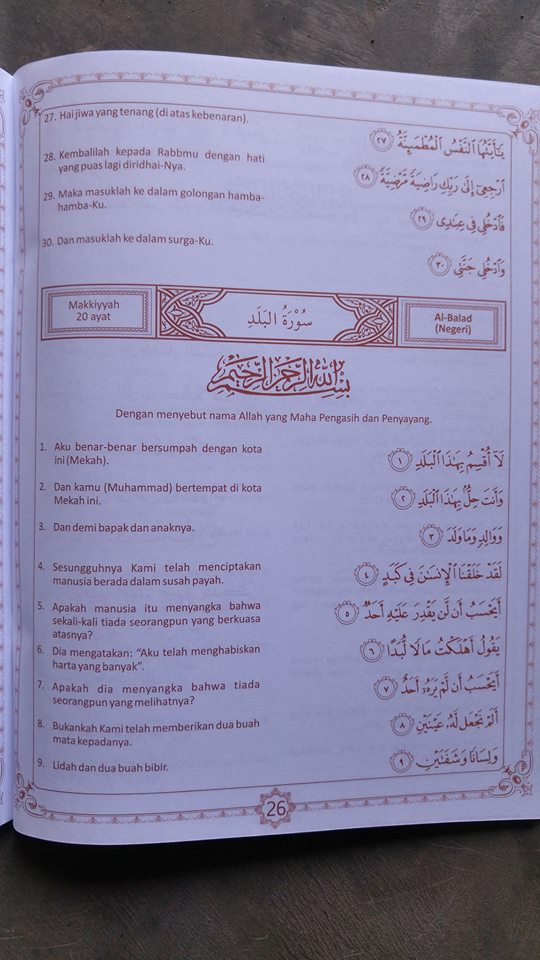 27. Hai jiwa yang tenang (di atas kebenaran).
يَـٰٓأَيَّتُهَا ٱلنَّفْسُ ٱلْمُطْمَئِنَّةُ ٢٧
28. Kembalilah kepada Rabbmu dengan hati
yang puas lagi diridhai-Nya.
ٱرْجِعِىٓ إِلَىٰ رَبِّكِ رَاضِيَةً مَّرْضِيَّةً ٢٨
29. Maka masuklah ke dalam golongan hamba-
hamba-Ku.
فَٱدْخُلِى فِى عِبَـٰدِى ٢٩
30. Dan masuklah ke dalam surga-Ku.
وَٱدْخُلِى جَنَّتِى ٣٠
Makkiyyah
20 ayat
سُورَةُ البَلَدِ
Al-Balad
(Negeri)
بِسْمِ اللَّهِ الرَّحْمَٰنِ الرَّحِيمِ
Dengan menyebut nama Allah yang Maha Pengasih dan Penyayang.
1. Aku benar-benar bersumpah dengan kota
ini (Mekah).
لَآ أُقْسِمُ بِهَـٰذَا ٱلْبَلَدِ ١
2. Dan kamu (Muhammad) bertempat di kota
Mekah ini.
وَأَنتَ حِلٌّۢ بِهَـٰذَا ٱلْبَلَدِ ٢
3. Dan demi bapak dan anaknya.
وَوَالِدٍ وَمَا وَلَدَ ٣
4. Sesungguhnya Kami telah menciptakan
manusia berada dalam susah payah.
لَقَدْ خَلَقْنَا ٱلْإِنسَـٰنَ فِى كَبَدٍ ٤
5. Apakah manusia itu menyangka bahwa
sekali-kali tiada seorangpun yang berkuasa
atasnya?
أَيَحْسَبُ أَن لَّن يَقْدِرَ عَلَيْهِ أَحَدٌ ٥
6. Dia mengatakan: “Aku telah menghabiskan
harta yang banyak”.
يَقُولُ أَهْلَكْتُ مَالًا لُّبَدًا ٦
7. Apakah dia menyangka bahwa tiada
seorangpun yang melihatnya?
أَيَحْسَبُ أَن لَّمْ يَرَهُۥٓ أَحَدٌ ٧
8. Bukankah Kami telah memberikan dua buah
mata kepadanya.
أَلَمْ نَجْعَل لَّهُۥ عَيْنَيْنِ ٨
9. Lidah dan dua buah bibir.
وَلِسَانًا وَشَفَتَيْنِ ٩
26